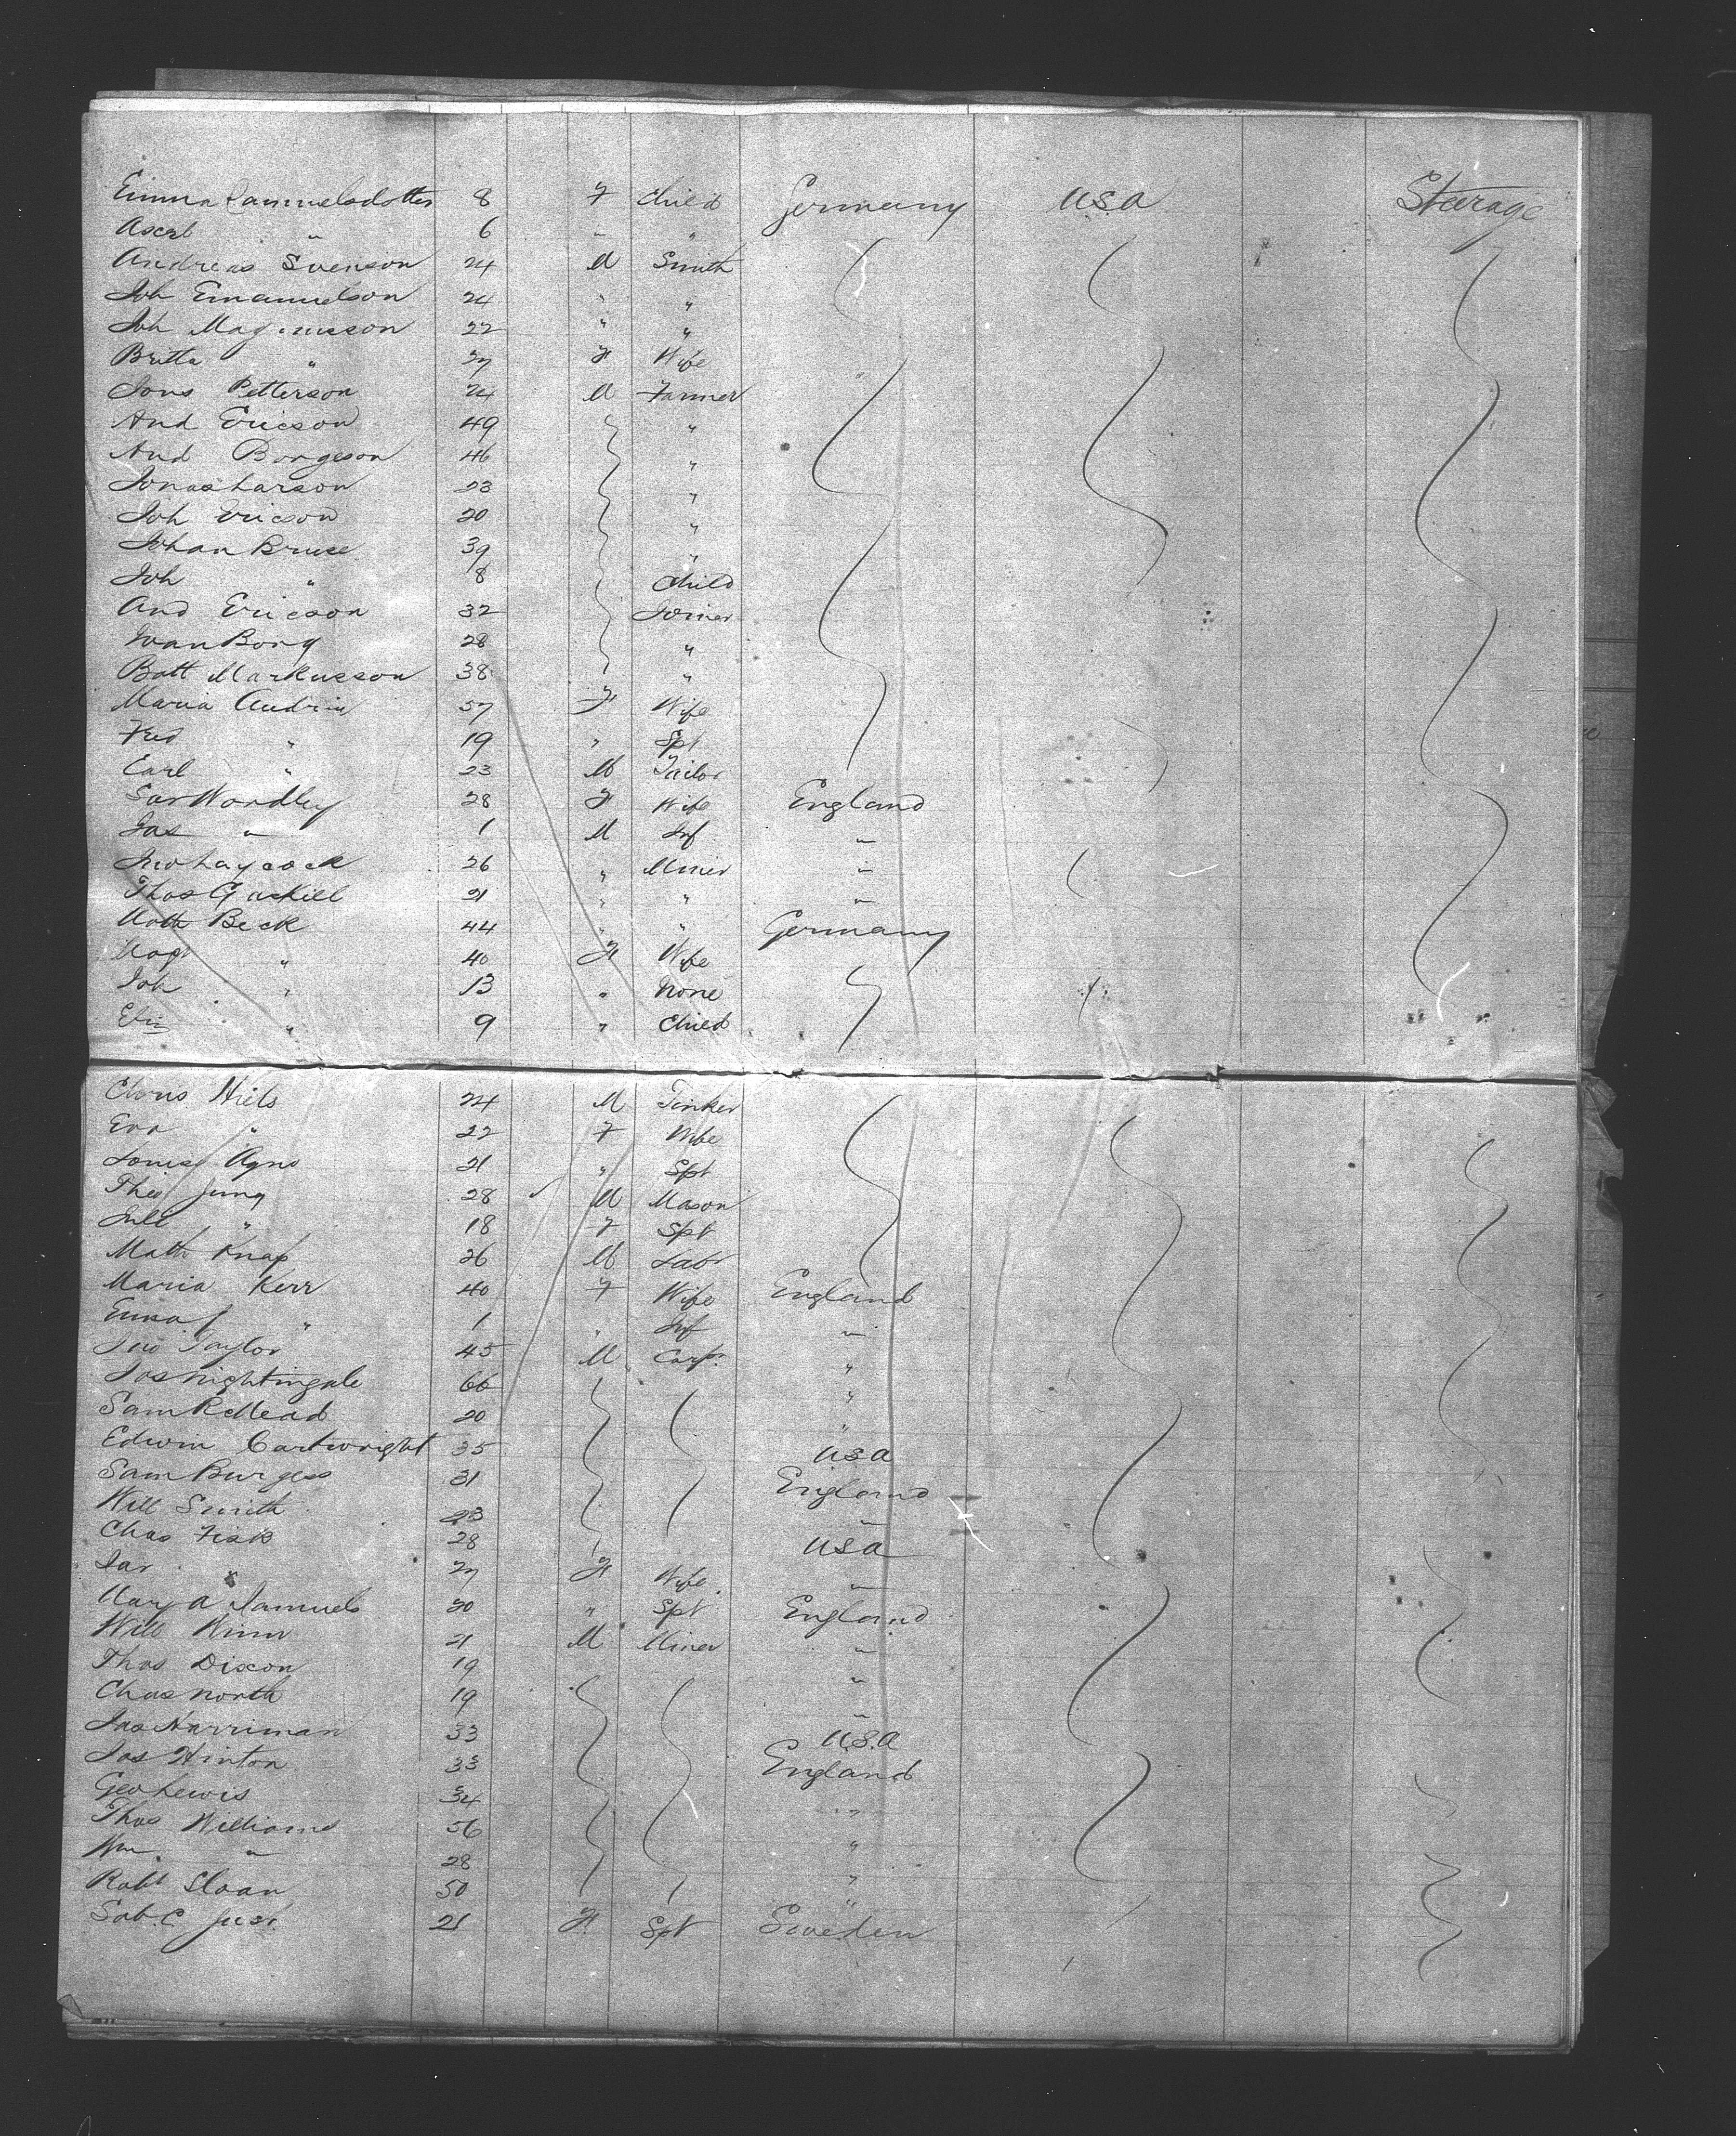 Emma Samuelsdotter 8 F Child Germany USA Steerage
Axel " 6 " "
Andreas Svenson 24 M Smith
Joh Emanuelson 24 " "
Joh Magnusson 22 " "
Britta " 27 F Wife
Jons Petterson 24 M Farmer
And Ericson 49 "
And Borgeson 46 "
Jonas Larson 23 "
Joh Ericson 20 "
Johan Bruse 39 "
Joh " 8 Child
And Ericson 32 Joiner
Ivan Borg 28 "
Batt Markusson 38 "
Maria Audrin 57 F Wife
Fred " 19 " Spt
Earl " 23 M Tailor
Sar Wordley 28 F Wife England
Jas " 1 M Inf "
Jno Laycock 26 " Miner "
Thos Gaskill 21 " " "
Math Beck 44 " " Germany
Magt " 40 F Wife
Joh " 13 " None
Eliz " 9 " Child
Chris Hiels 24 M Tinker
Eva " 22 F Wife
Louise Agno 21 " Spt
Theo Jung 28 M Mason
Jull " 18 F Spt
Math Knap 26 M Labr
Maria Kerr 40 F Wife England
Emma J " 1 " Inf "
Jno Taylor 45 M Carpr "
Jos Nightingale 66 "
Sam R Mead 20 "
Edwin Cartwright 35 USA
Sam Burgess 31 England
Will Smith 23 "
Chas Fisk 28 USA
Sar " 27 F Wife "
Mary A Samuels 20 " Spt England
Will Winn 21 M Miner "
Thos Dixon 19 "
Chas North 19 "
Jas Harriman 33 U.S.A
Jos Hinton 33 England
Geo Lewis 34 "
Thos Williams 56 "
Wm " 28 "
Robt Sloan 50 "
Sab. C. Just 21 F Spt Sweden